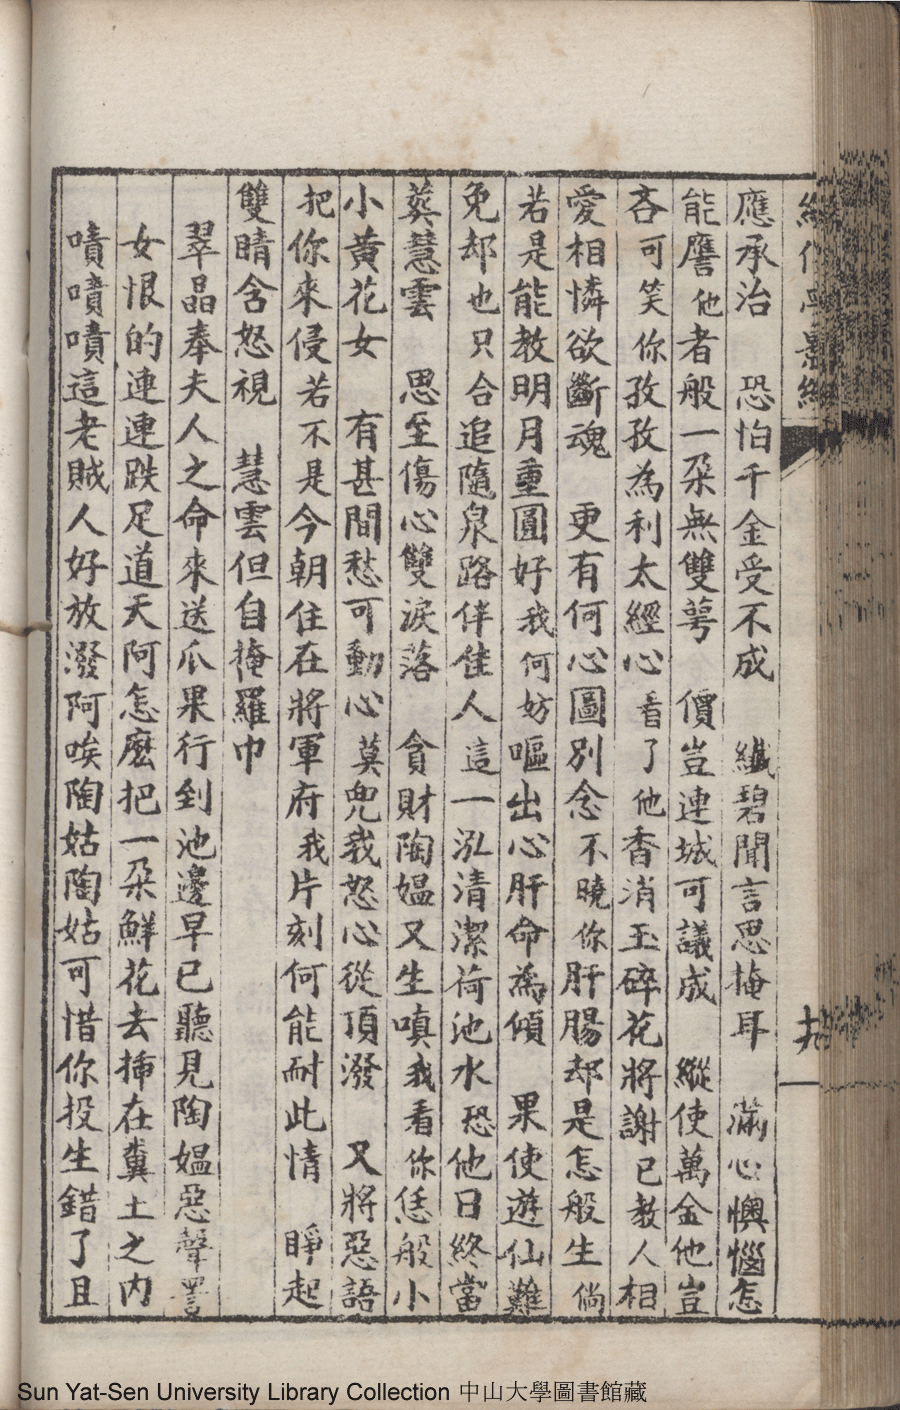 應承治　恐怕千金受不成　纖碧聞言思掩耳　滿心懊惱怎
能譍他者般一朶無雙萼　價豈連城可議成　縱使萬金他豈
吝可笑你孜孜為利太經心看了他香消玉碎花將謝已教人相
愛相憐欲斷魂　更有何心圖別念不曉你肝腸却是怎般生倘
若是能教明月重圓好我何妨嘔出心肝命為傾　果使遊仙難
免却也只合追隨泉路伴佳人這一泓清潔荷池水恐他日終當
葬慧雲　思至傷心雙淚落　貪財陶媼又生嗔我看你恁般小
小黃花女　有甚閒愁可動心莫兜我怒心從頂潑　又將惡語
把你來侵若不是今朝住在將軍府我片刻何能耐此情　睜起
雙睛含怒視　慧雲但自掩羅巾
翠晶奉夫人之命來送瓜果行到池邊早已聽見陶媼惡聲詈
女恨的連連跌足道天阿怎麼把一朶鮮花去揷在糞土之內
嘖嘖嘖這老賊人好放潑阿唉陶姑陶姑可惜你投生錯了且
十九
Sun Yat-Sen University Library Collection 中山大學圖書館藏